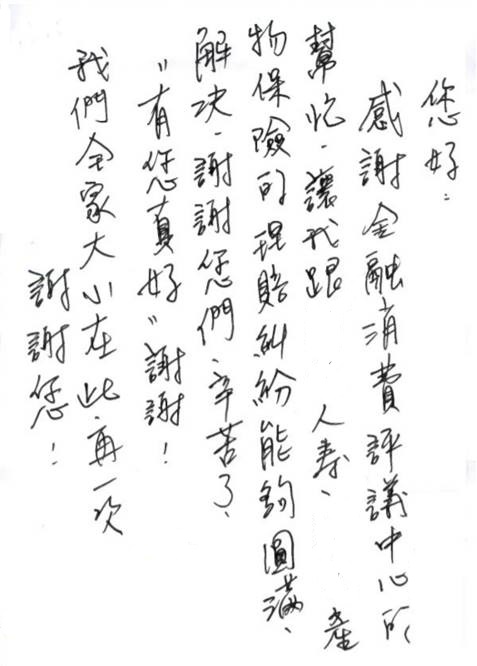 您好：
感謝金融消費評議中心的
幫忙，讓我跟　　人壽、　　產
物保險的理賠糾紛能夠圓滿、
解決，謝謝您們、辛苦了、
"有您真好"謝謝！
我們全家大小在此，再一次
謝謝您！